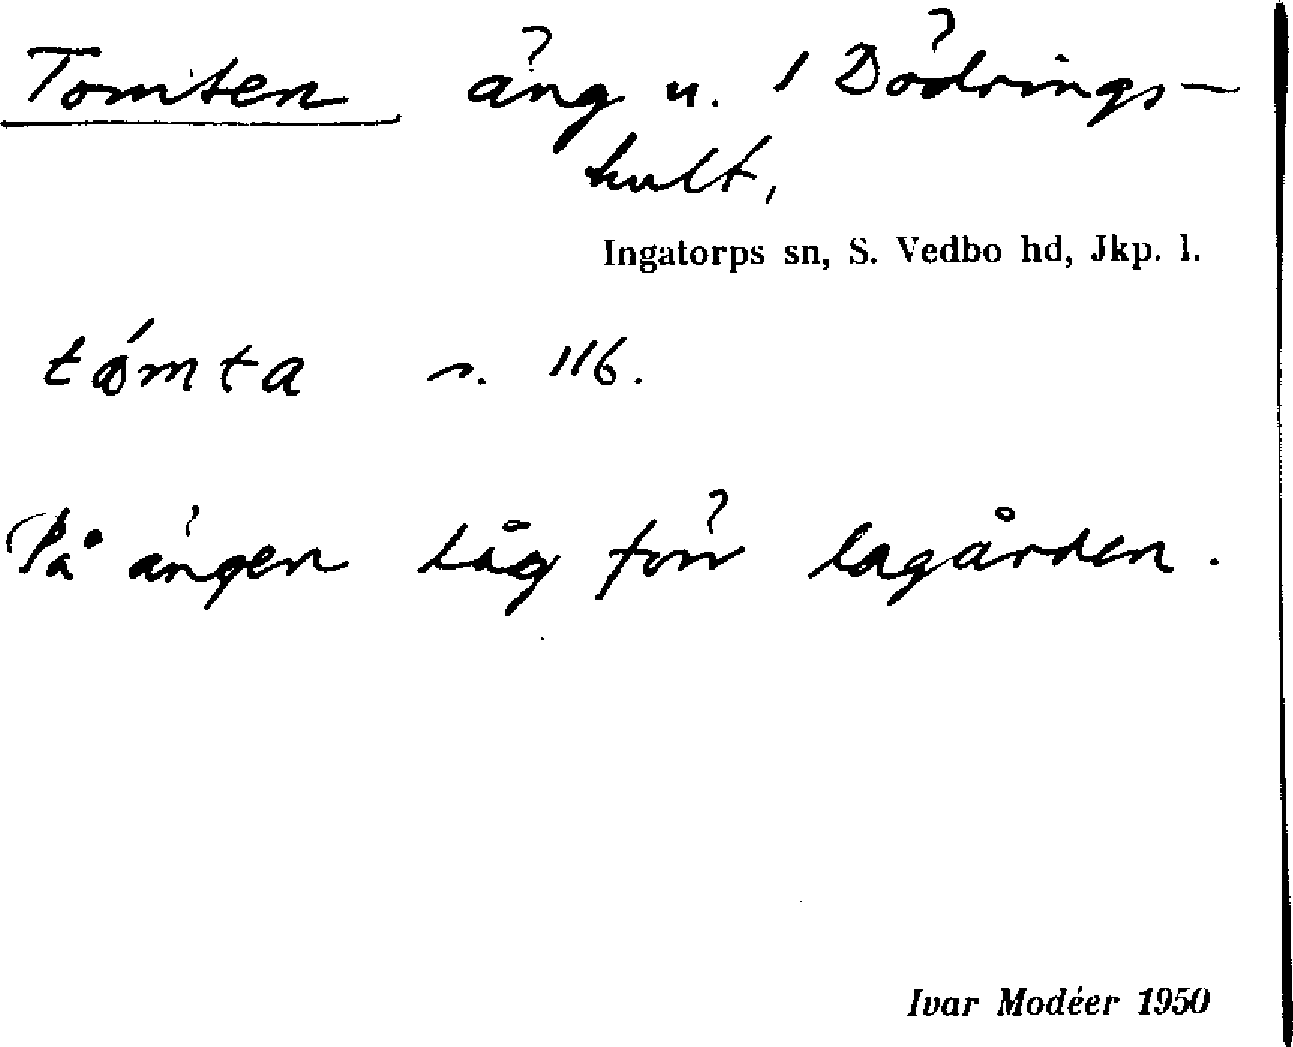 Tomten äng u. 1 Dödrings-
hult,
Ingatorps sn, S. Vedbo hd, Jkp. l.
tómta s. 116.
På ängen låg förr lagården.
Ivar Modéer 1950